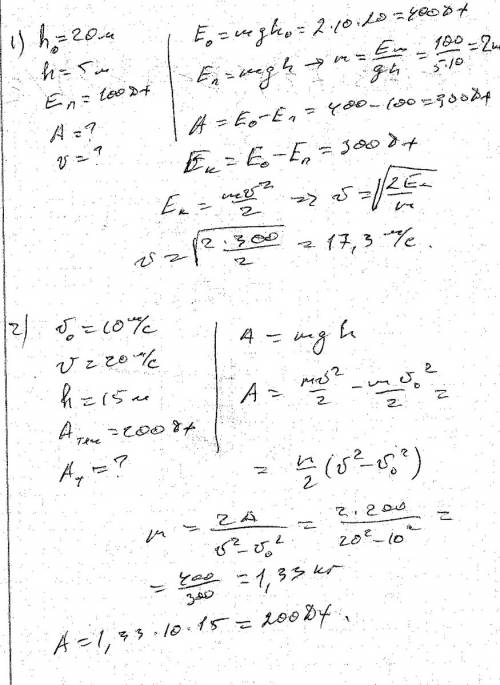 1) h₀=20м
h=5м
Eп=100Дж
A=?
v=?
E₀=mgh₀=2·10·20=400Дж
Eп=mgh → m=Eп/gh=100/5·10=2кг
A=E₀-Eп=400-100=300Дж
Eк=E₀-Eп=300Дж
Eк=mv²/2 => v=√2Eк/m
v=√2·300/2=17,3 м/с.
2) v₀=10м/с
v=20м/с
h=15м
Aтяж=200Дж
A=?
A=mgh
A=mv²/2-mv₀²/2=
=m/2(v²-v₀²)
m=2A/v²-v₀²=2·200/20²-10²=
=400/300=1,33 кг
A=1,33·10·15=200Дж.